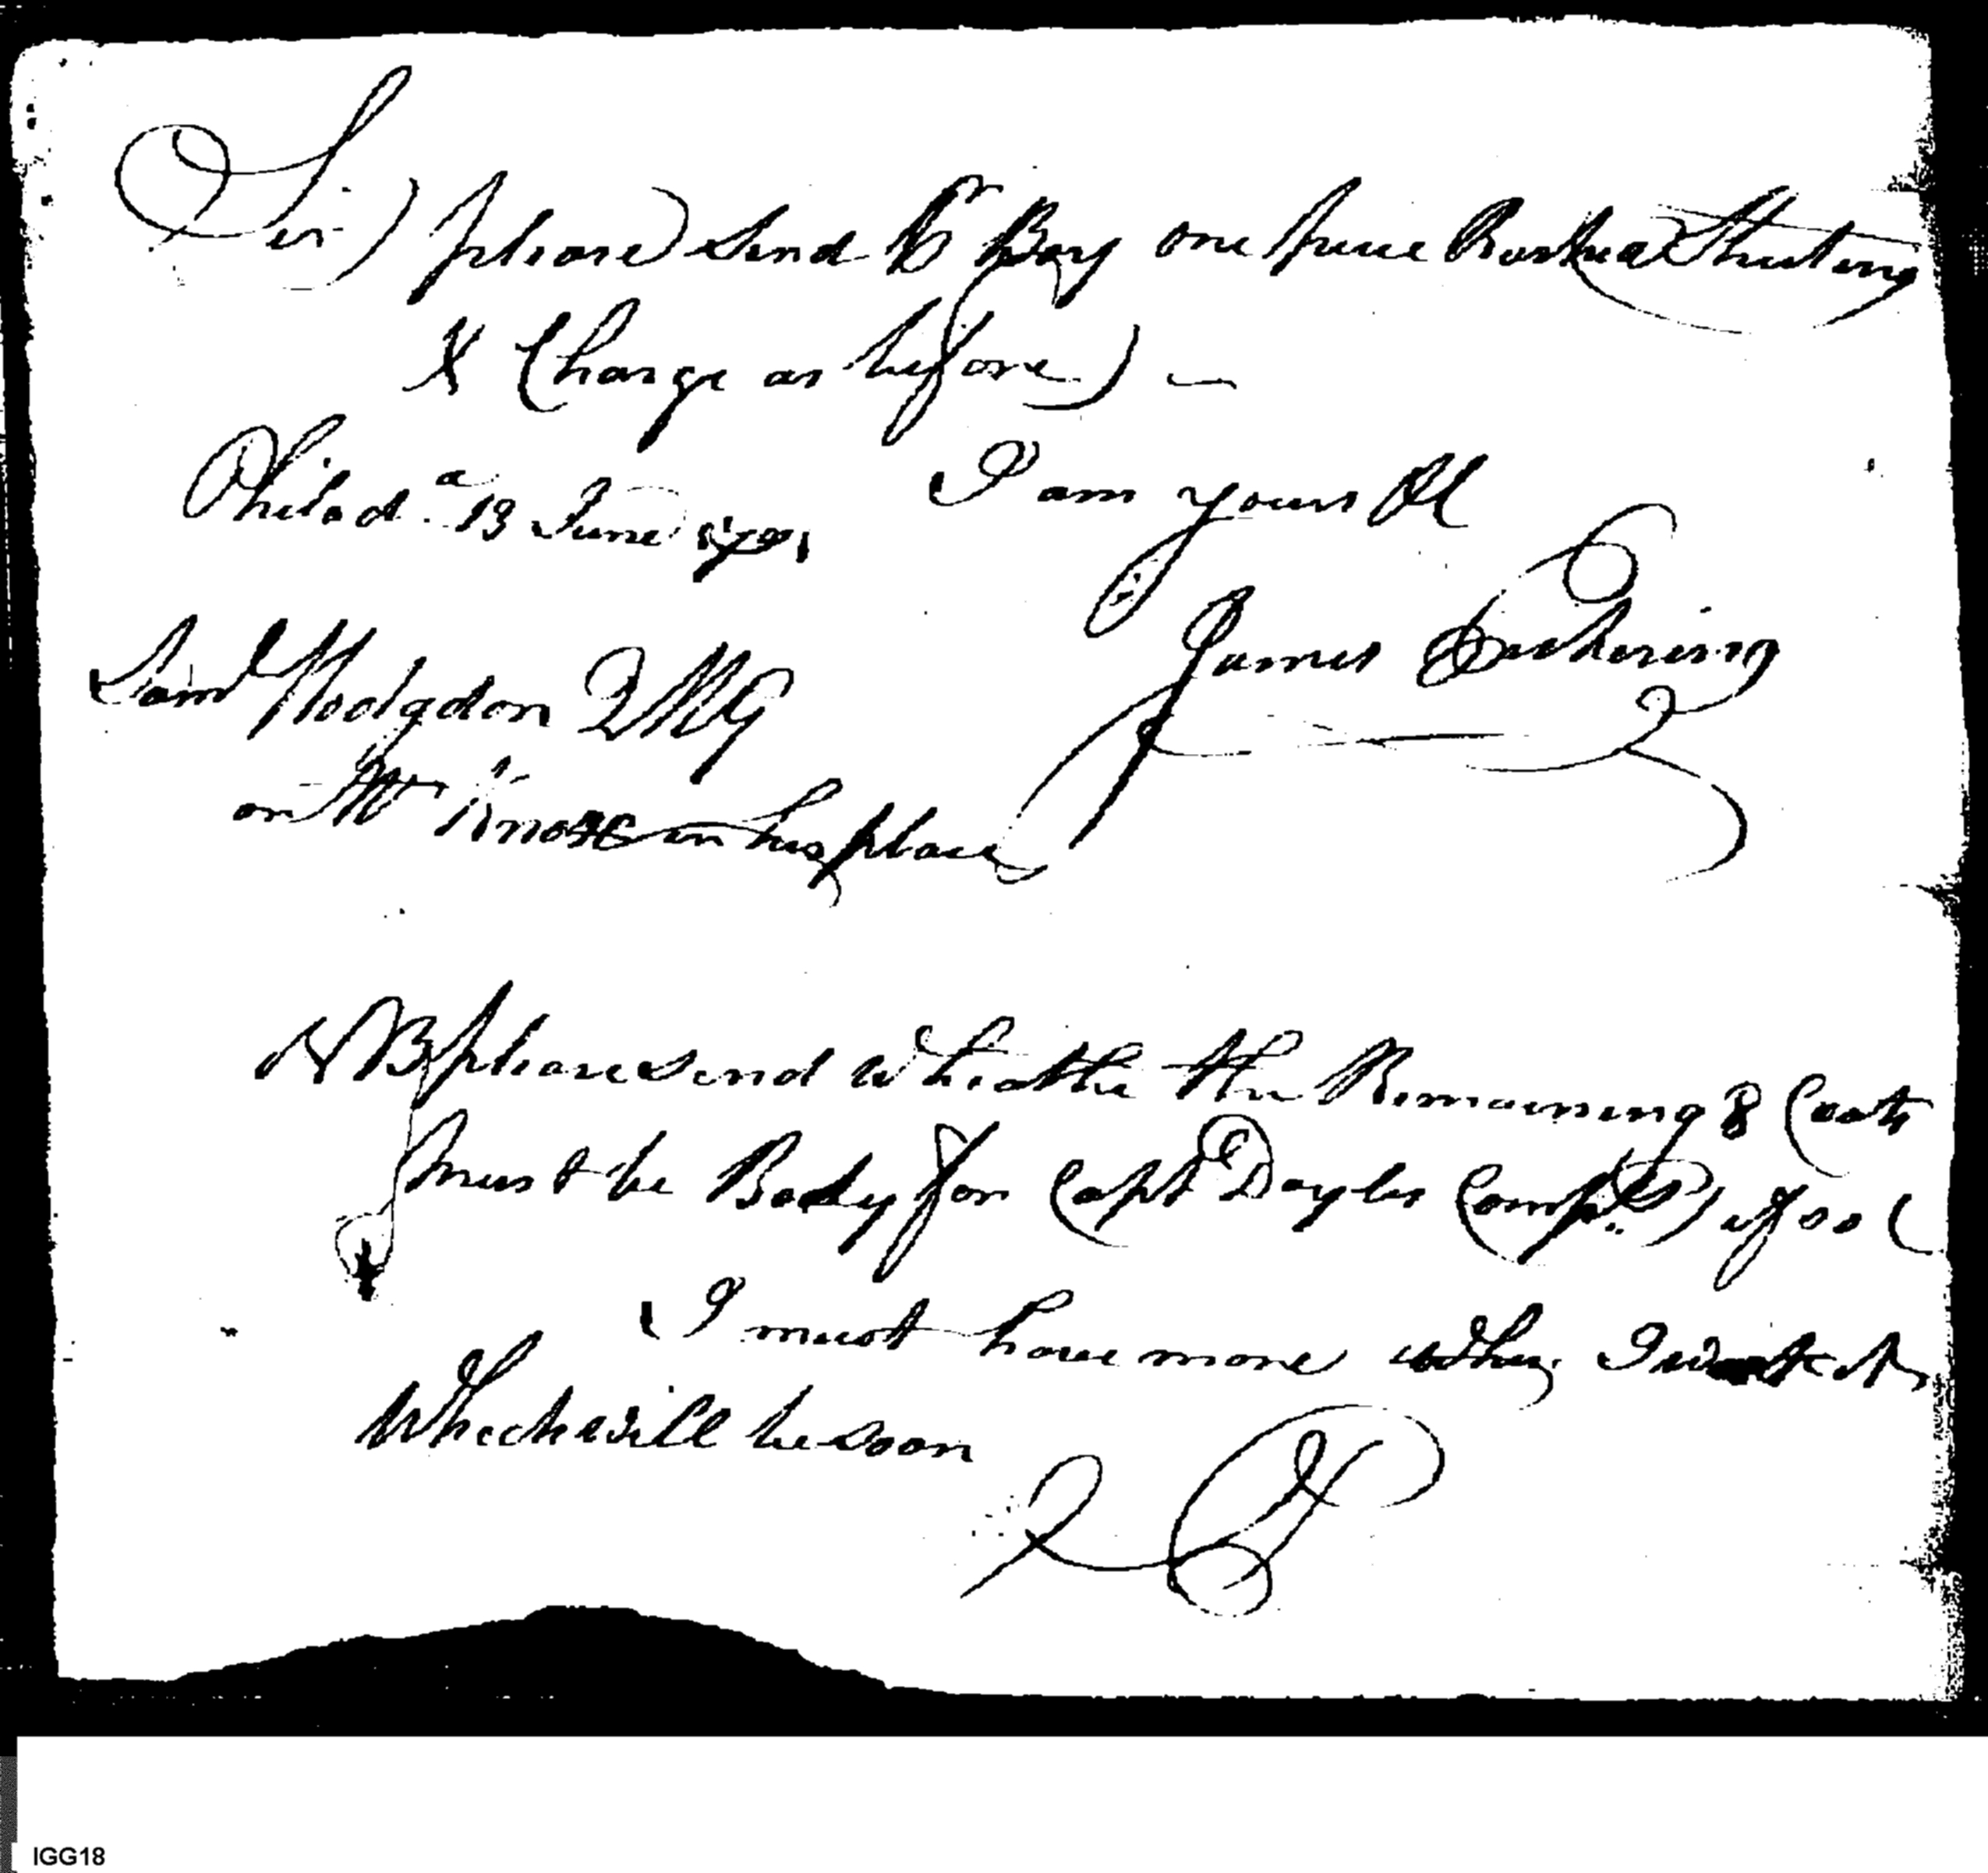 Sir please send Pr Boy one piece Russia Sheeting
& Charge as before —
I am yours &c
Philada. 13 June 1791
James Pickering
Saml Hodgdon QMG
or Mr Knox in his place
NB please send wheathe the Remaining 8 Coats
must be Body for Capt Doyles Comp.y if so
I must have more why I want it
Which will be soon
IGG18